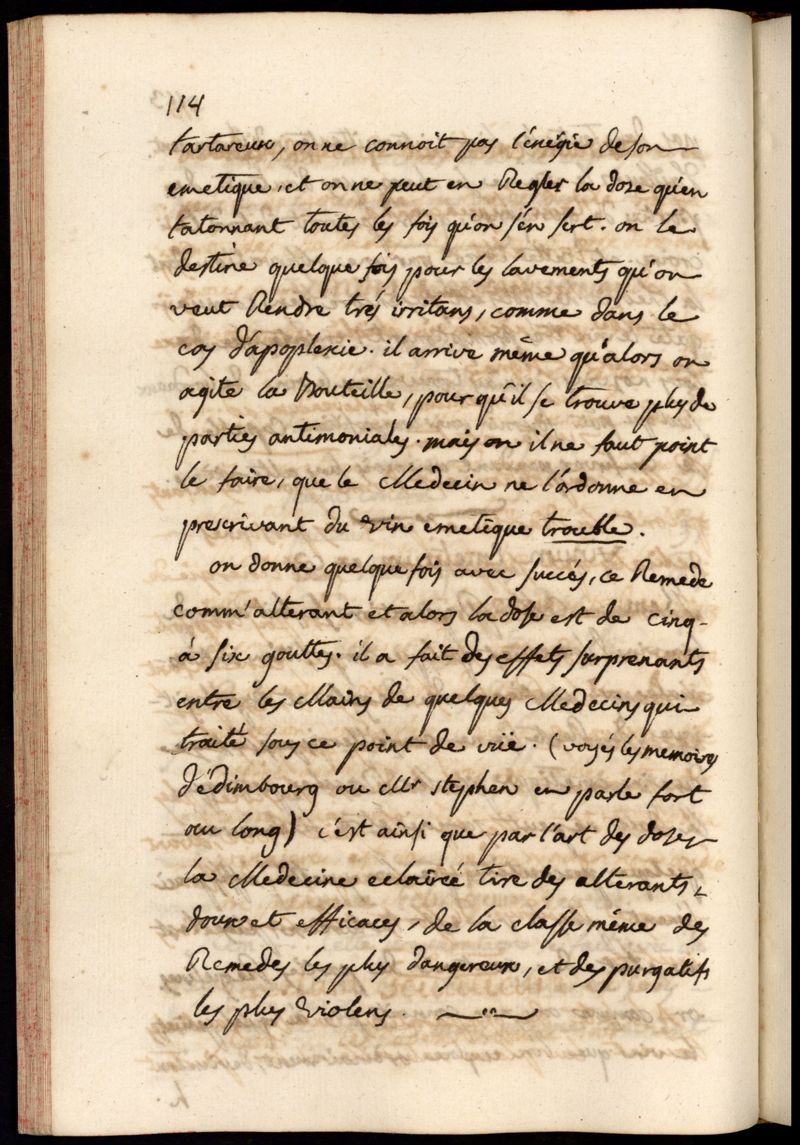 114
tartareux, on ne connoit pas l'énégie de son
emetique, et on ne peut en Regler la doze qu'en
tatonnant toutes les fois qu'on s'én sert. on le
destine quelque fois pour les lavements qu'on
veut Rendre trés irritans, comme dans le
cas d'apoplexie. il arrive même qu'alors on
agite la Bouteille, pour qu'il se trouve plus de
parties antimoniales. mais on il ne faut point
le faire, que le Medecin ne l'ordonne en
prescrivant du vin emetique trouble.
on donne quelque fois avec succés, ce Remede
comm'alterant et alors la dose est de cinq-
à six gouttes. il a fait des effets surprenants
entre les Mains de quelques Medecins qui
traité sous ce point de vüe. (voyés les memoires
d'édimbourg ou Mr stephen en parle fort
au long) c'est ainsi que par l'art des dozes
la Medecine eclaircé tire des alterants
doux et efficaces, de la classe même des
Remedes les plus dangereux, et des purgatifs
les plus violens.